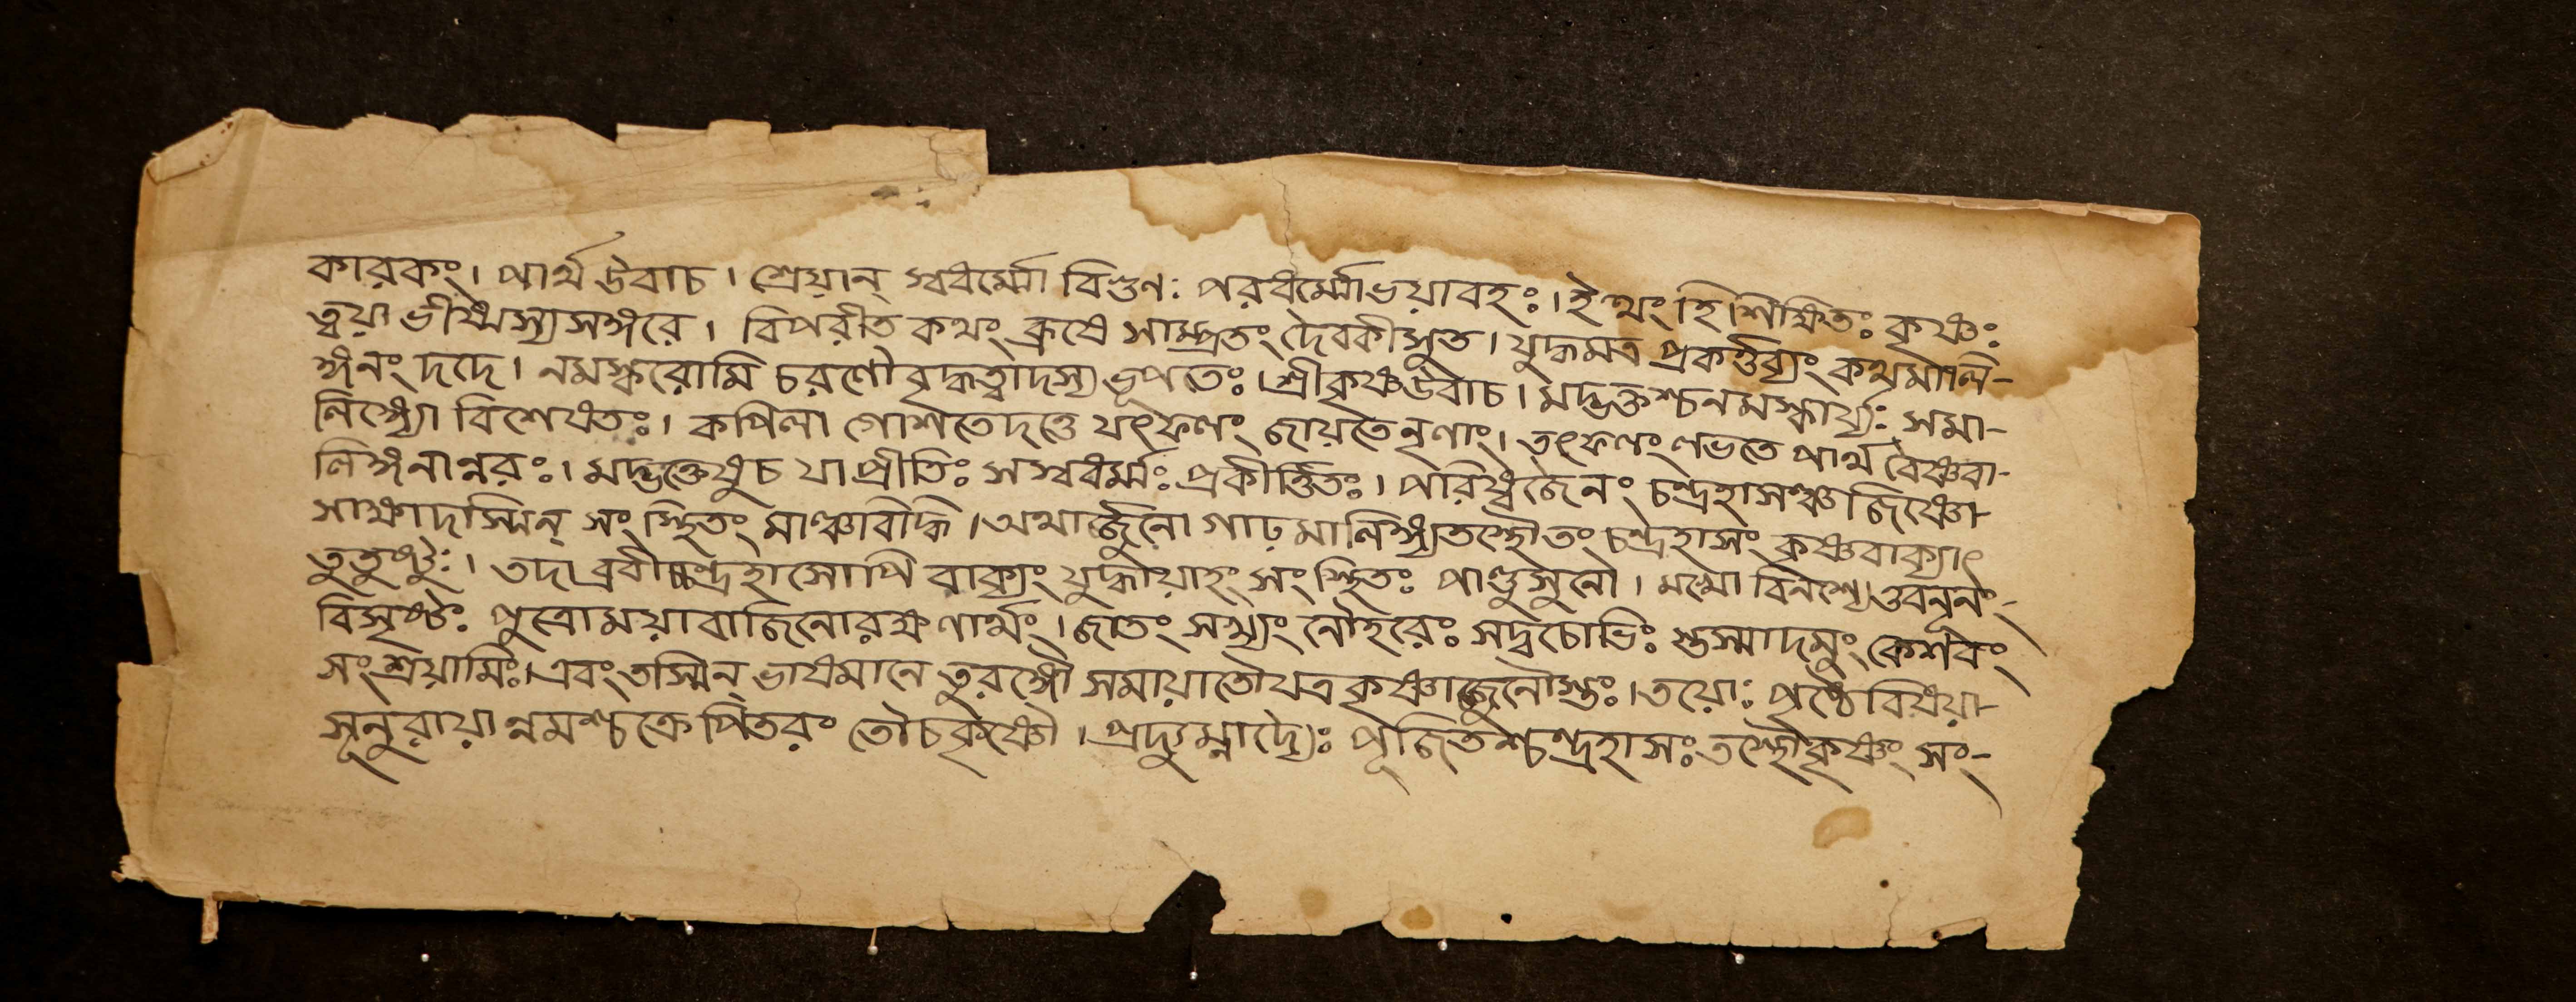 কারকং। পার্থ উবাচ। শ্রেয়ান্ স্বধর্ম্মো বিগুণঃ পরধর্ম্মোভয়াবহঃ। ইত্থং হি শিক্ষিতঃ কৃষ্ণঃ
ত্বয়া ভীষ্মস্যসঙ্গরে। বিপরীত কথং ব্রূষে সাম্প্রতং দৈবকীসুত। যুদ্ধমত্র প্রকর্ত্তব্যং কথমালি-
ঙ্গনং দদে। নমস্করোমি চরণৌ বৃদ্ধত্বাদস্য ভূপতেঃ। শ্রীকৃষ্ণউবাচ। মদ্ভক্তশ্চনমস্কার্য্যঃ সমা-
লিঙ্গ্যো বিশেষতঃ। কপিলা গোশতেদত্তে যৎফলং জায়তেনৃণাং। তৎফলং লভতে পার্থ বৈষ্ণবা-
লিঙ্গনান্নরঃ। মদ্ভক্তেষুচ যা প্রীতিঃ সস্বধর্ম্মঃ প্রকীর্ত্তিতঃ। পরিষ্বজৈনং চন্দ্রহাসঞ্চজিষ্ণো-
সাক্ষাদস্মিন্ সংস্থিতং মাঞ্চাবিদ্ধি। অথার্জ্জুনো গাঢ়মালিঙ্গ্যতস্থৌতং চন্দ্রহাসং কৃষ্ণবাক্যাৎ
তুতুষ্টুঃ। তদাব্রবীচ্চন্দ্রহাসোপি বাক্যং যুদ্ধায়াহং সংস্থিতঃ পাণ্ডুসুনো। মখো বিনশ্যে
বিসৃষ্টঃ পুত্রোময়াবাজিনোরক্ষণার্থং। জাতং সখ্যং নৌহরেঃ সদ্বচোভিঃ স্তস্মাদমুং কেশবং
সংশ্রয়ামিঃ। এবংতস্মিন্ ভাষমানে তুরঙ্গৌ সমায়াতৌযত্রকৃষ্ণার্জুনৌস্তঃ। তয়োঃ পৃষ্ঠে বিষয়া-
সূনুরায়ান্নমশ্চক্রে পিতরং তৌচকৃষ্ণৌ। প্রদ্যুম্নাদ্যৈঃ পূজিতশ্চন্দ্রহাসঃ তস্থৌকৃষ্ণং সং-